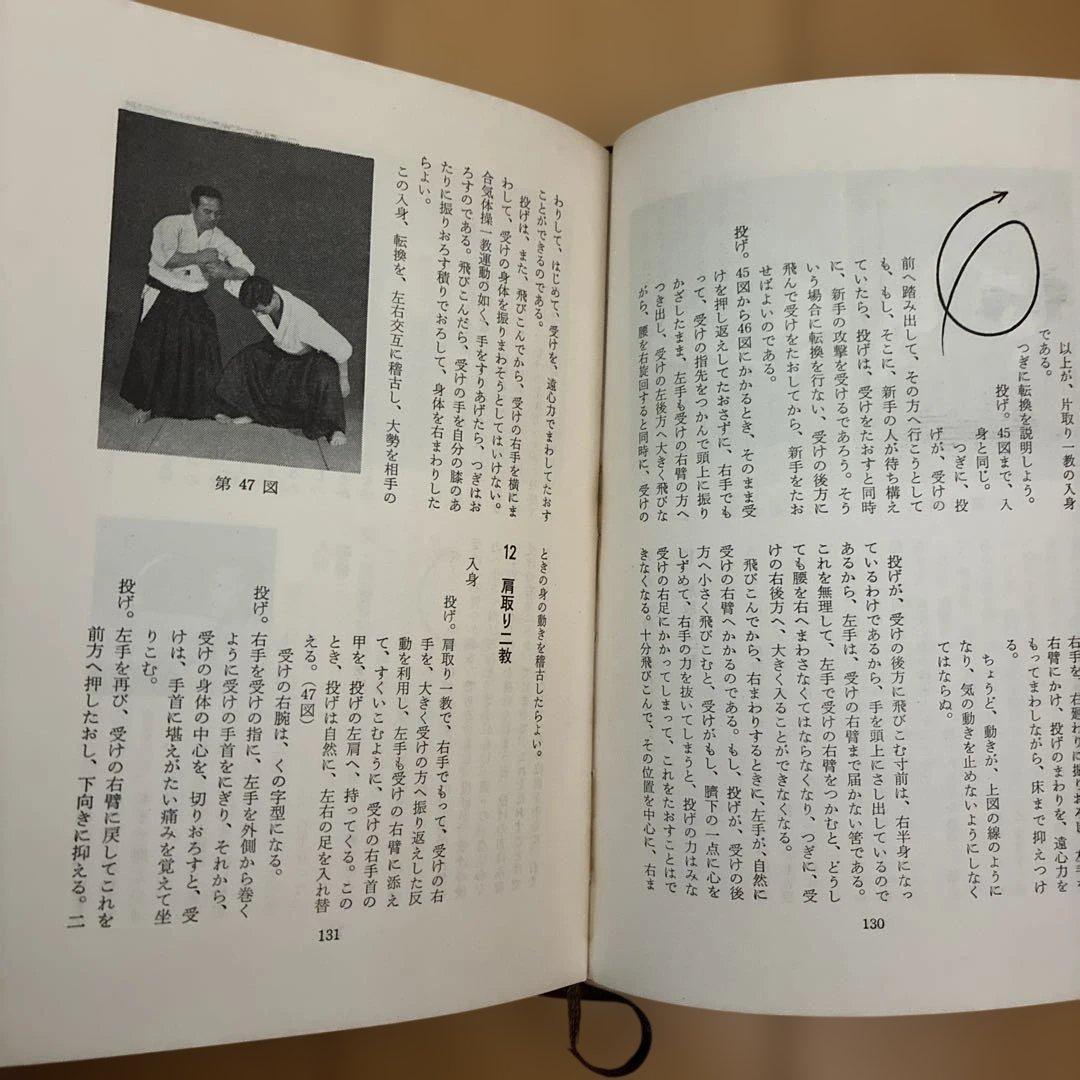 以上が、片取り一教の入身
である。
つぎに転換を説明しよう。
投げ。45図まで、入
身と同じ。
つぎに、投
げが、受けの
前へ踏み出して、その方へ行こうとして
も、もし、そこに、新手の人が待ち構え
ていたら、投げは、受けをたおすと同時
に、新手の攻撃を受けるであろう。そう
いう場合に転換を行ない、受けの後方に
飛んで受けをたおしてから、新手をたお
せばよいのである。
投げ。45図から46図にかかるとき、そのまま受
けを押し返えしてたおさずに、右手でも
って、受けの指先をつかんで頭上に振り
かざしたまま、左手も受けの右臂の方へ
つき出し、受けの左後方へ大きく飛びな
がら、腰を右旋回すると同時に、受けの
右手を、右廻りに振
右臂にかけ、投げのまわりを、遠心力を
もってまわしながら、床まで抑えつけ
る。
ちょうど、動きが、上図の線のように
なり、気の動きを止めないようにしなく
てはならぬ。
投げが、受けの後方に飛びこむ寸前は、右半身になっ
ているわけであるから、手を頭上にさし出しているので
あるから、左手は、受けの右臂まで届かない筈である。
これを無理して、左手で受けの右臂をつかむと、どうし
ても腰を右へまわさなくてはならなくなり、つぎに、受
けの右後方へ、大きく入ることができなくなる。
飛びこんでから、右まわりするときに、左手が、自然に
受けの右臂へかかるのである。もし、投げが、受けの後
方へ小さく飛びこむと、受けがもし、臍下の一点に心を
しずめて、右手の力を抜いてしまうと、投げの力はみな
受けの右足にかかってしまって、これをたおすことはで
きなくなる。十分飛びこんで、その位置を中心に、右ま
130
わりして、はじめて、受けを、遠心力でまわしてたおす
ことができるのである。
投げは、また、飛びこんでから、受けの右手を横にま
わして、受けの身体を振りまわそうとしてはいけない。
合気体操一教運動の如く、手をすりあげたら、つぎはお
ろすのである。飛びこんだら、受けの手を自分の膝のあ
たりに振りおろす積りでおろして、身体を右まわりした
らよい。
この入身、転換を、左右交互に稽古し、大勢を相手の
第 47 図
ときの身の動きを稽古したらよい。
12 肩取り二教
入身
投げ。肩取り一教で、右手でもって、受けの右
手を、大きく受けの方へ振り返えした反
動を利用し、左手も受けの右臂に添え
て、すくいこむように、受けの右手首の
甲を、投げの左肩へ、持ってくる。この
とき、投げは自然に、左右の足を入れ替
える。（47図）
受けの右腕は、くの字型になる。
投げ。右手を受けの指に、左手を外側から巻く
ように受けの手首をにぎり、それから、
受けの身体の中心を、切りおろすと、受
けは、手首に堪えがたい痛みを覚えて坐
りこむ。
投げ。左手を再び、受けの右臂に戻してこれを
前方へ押したおし、下向きに抑える。二
131